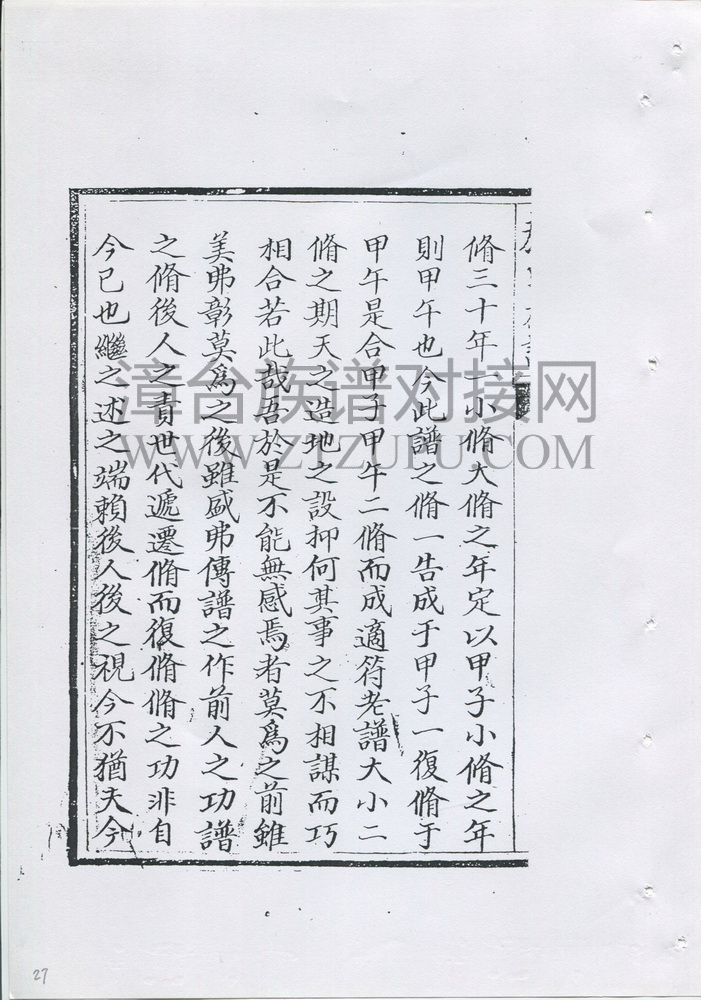 脩三十年一小脩大脩之年定以甲子小脩之年
則甲午也今此譜之脩一告成于甲子一復脩于
甲午是合甲子甲午二脩而成適符老譜大小二
脩之期天之造地之設抑何其事之不相謀而巧
相合若此哉吾於是不能無感焉者莫爲之前雖
美弗彰莫爲之後雖盛弗傳譜之作前人之功譜
之脩後人之責世代遞遷脩而復脩脩之功非自
今已也繼之述之端賴後人後之視今不猶夫今
漳台族谱对接网
WWW.ZTZUPU.COM
27